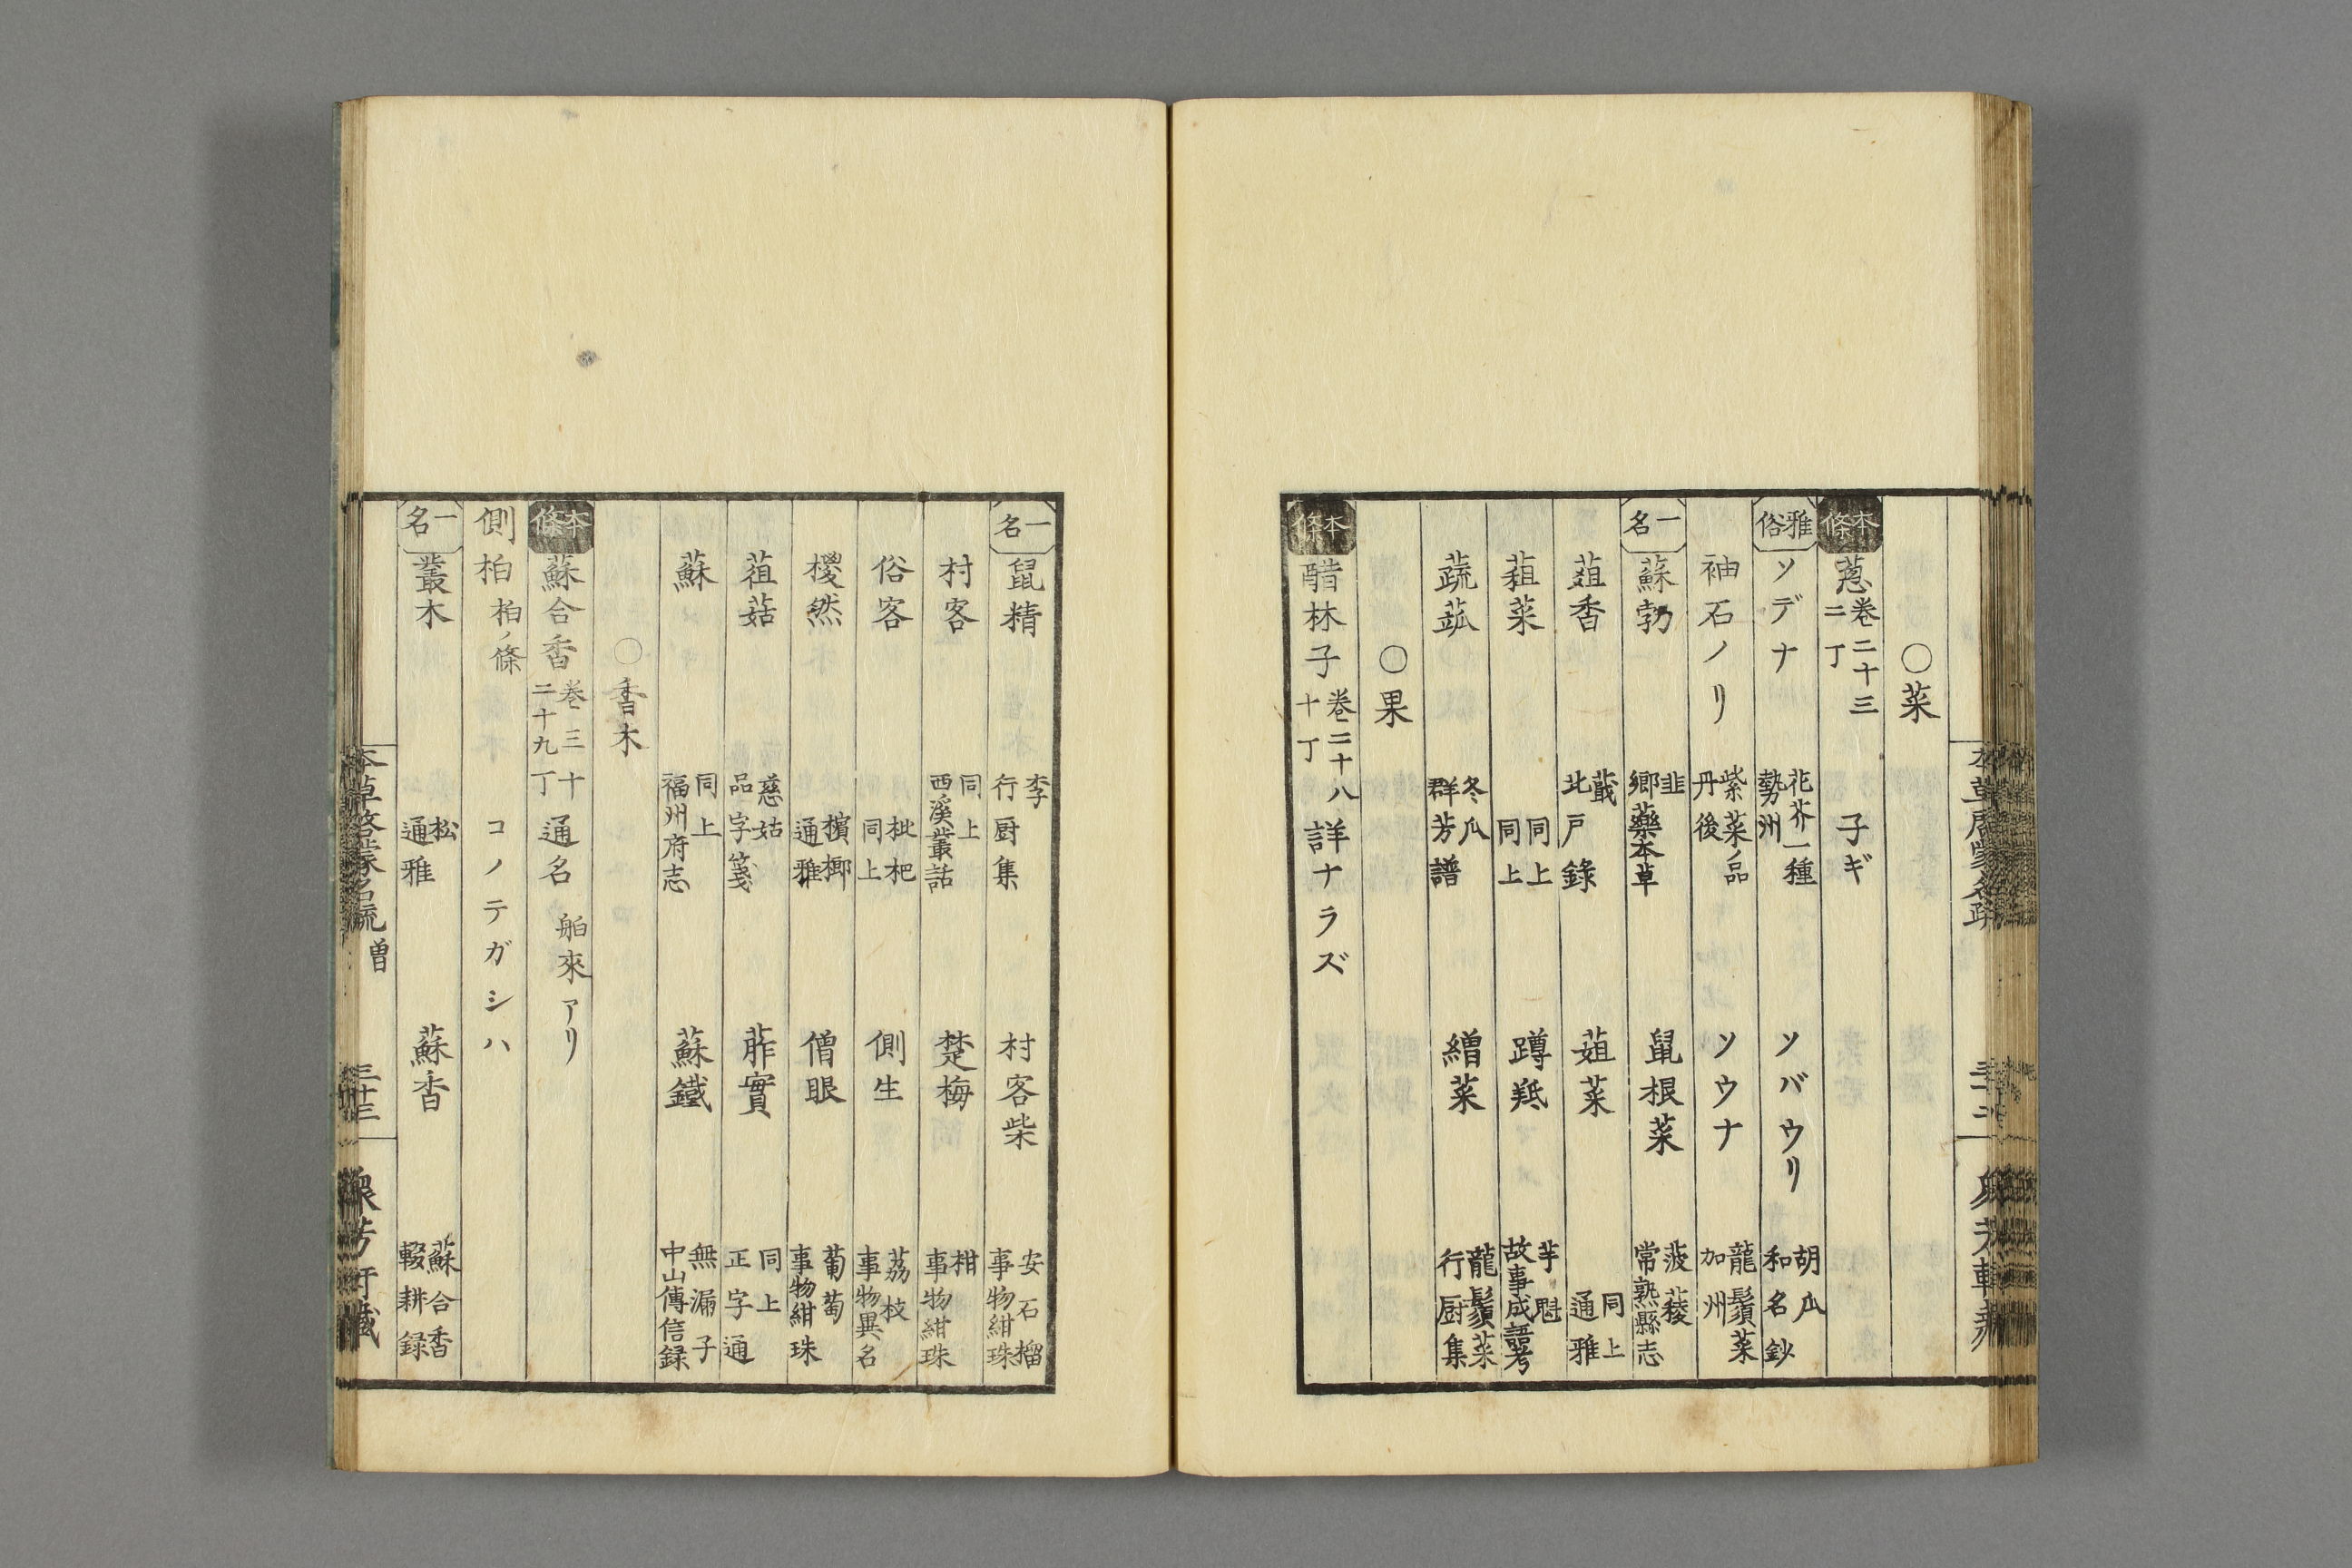 ○菜
本條 葱 卷二十三 二丁 子ギ
雅俗 ソデナ 花芥一種 勢州 ソバウリ 胡瓜 和名鈔
袖石ノリ 紫菜ノ品 丹後 ソウナ 龍鬚菜 加州
一名 蘇勃 韭 鄉藥本草 鼠根菜 菠薐 常熟縣志
葅香 蕺 北戸錄 葅菜 同上 通雅
葅菜 同上 同上 蹲羝 芋魁 故事成語考
蔬苽 冬瓜 群芳譜 繒菜 龍鬚菜 行厨集
○果
本條 醋林子 卷二十八 十丁 詳ナラズ
一名 鼠精 李 行厨集 村客柴 安石榴 事物紺珠
村客 同上 西溪叢話 楚梅 柑 事物紺珠
俗客 枇杷 同上 側生 荔枝 事物異名
椶然 檳榔 通雅 僧眼 葡萄 事物紺珠
葅菇 慈姑 品字箋 葄實 同上 正字通
蘇 同上 福州府志 蘇鐵 無漏子 中山傳信録
○香木
本條 蘇合香 卷三十 二十九丁 通名 舶來アリ
側柏 柏ノ條 コノテガシハ
一名 叢木 松 通雅 蘇香 蘇合香 輟耕録
本草啓蒙名疏 曽 三十三